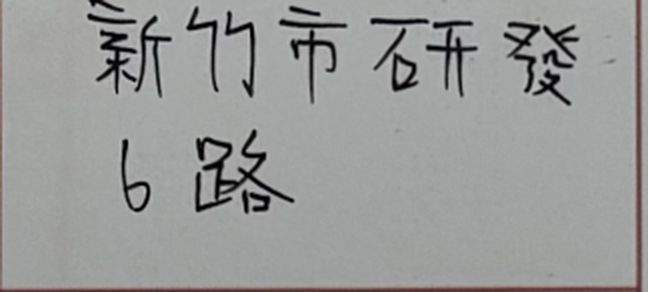 新竹市研發
6路